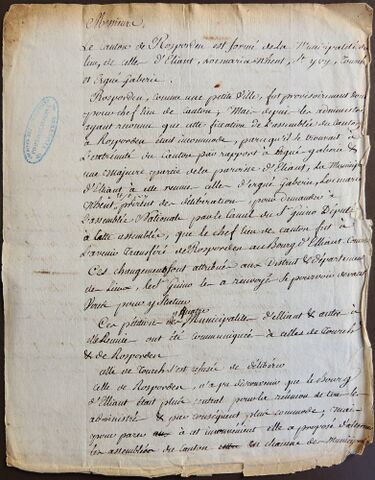 Monsieur,
Le canton de Rosporden est formé de la Municipalité du
lieu, de celle d'Eliant, locmaria St Yvy, Tourch
et Ergué gaberic.
Rosporden, comme une petite Ville, fut provisoirement
pour chef lieu de canton; Mais depuis les administrés
ayant reconnu que cette fixation de l'assemblée du canton
à Rosporden était incommode, parce qu'il se trouvait à
l'extremité du canton par rapport à Ergué gaberic &
une majeure partie de la paroisse d'Eliant, la Municipalité
d'Eliant à elle reunie celle d'ergué gaberic, locmaria
prirent des déliberations pour demander à
l'assemblée Nationale par le canal de Mr guino Député
à cette assemblée, que le chef lieu de canton fut à
l'avenir Transféré de Rosporden au Bourg d'Elliant Comme
Ces changements sont attribué aux District & Département
des Lieux, Mr guino les a renvoyé se pourvoir devant
Vous pour y statuer
Ces pétitions des quatre Municipalités d'Elliant & autres à
elle Reunies ont été communiquées à celles de Tourch
& de Rosporden
celle de Tourch s'est refusée de déliberer
celle de Rosporden, n'a pu disconvenir que le Bourg
d'Elliant était plus central pour la reunion de tous les
administrés & par conséquent plus commode, mais
pour parer à cet inconvénient elle a proposé d'alterner
les assemblées du canton en chacune des Municipalités